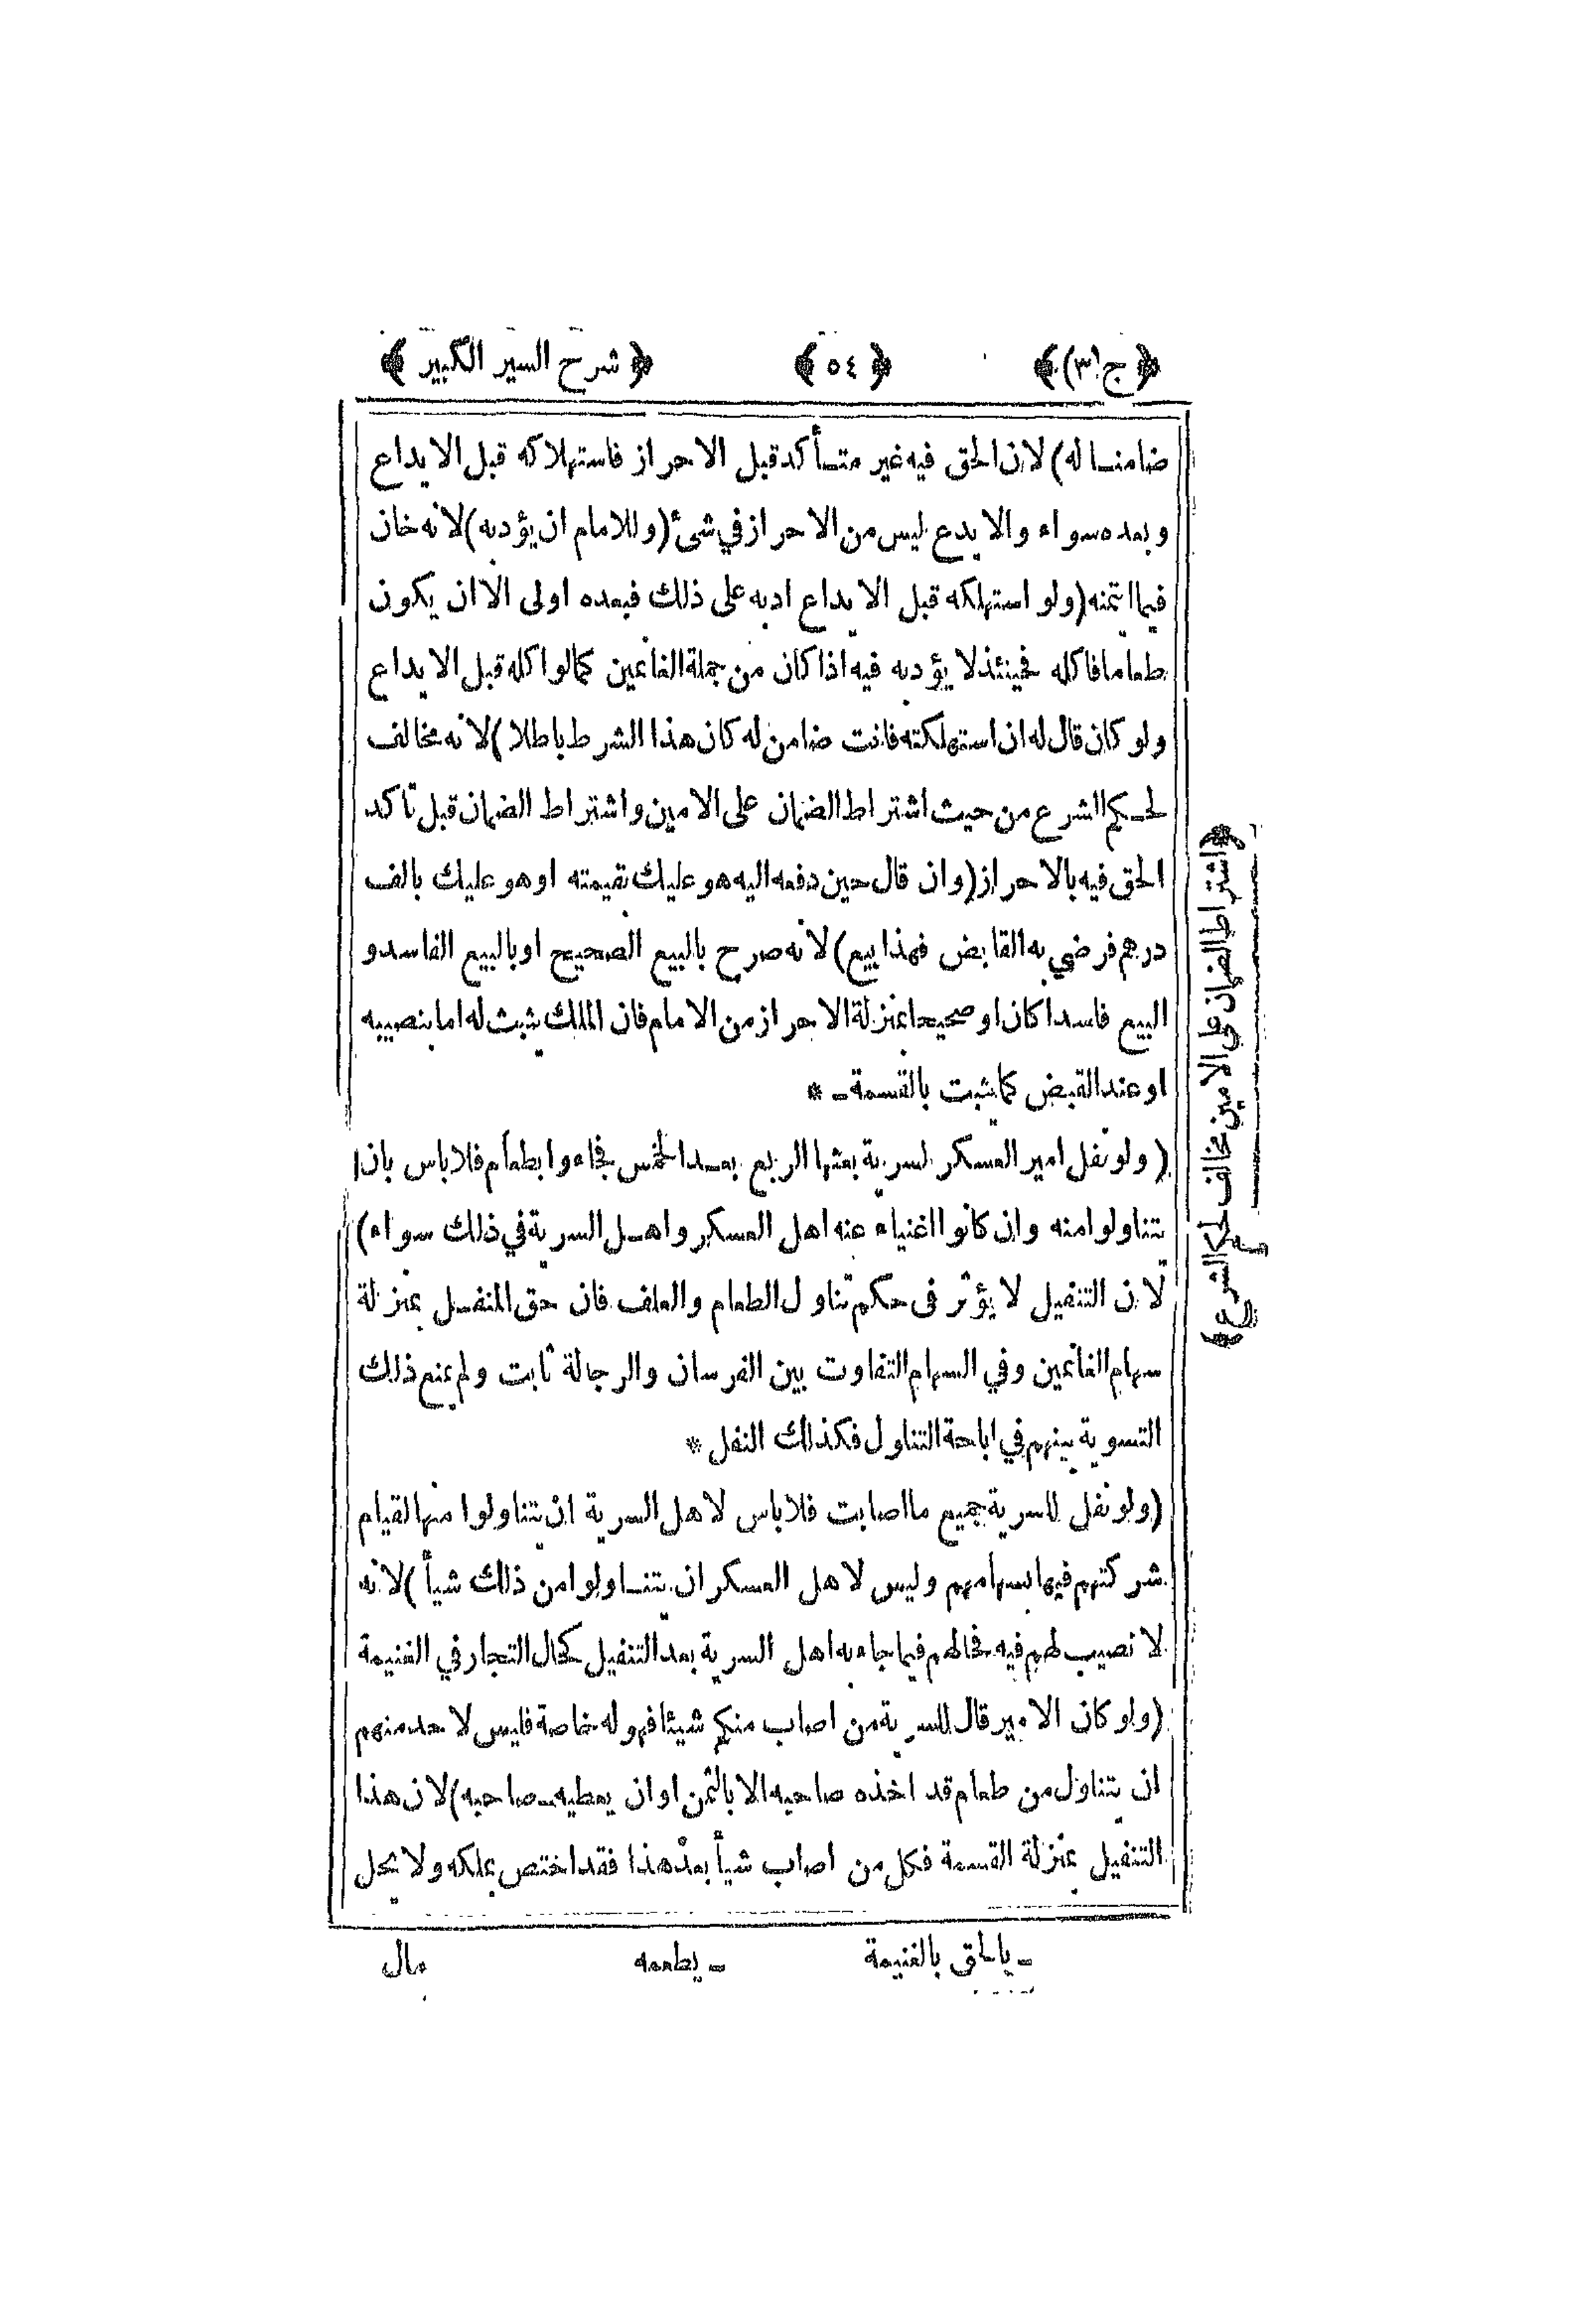 ﴿ ج (٣) ﴾ ﴿ ٥٤ ﴾ ﴿ شرح السير الكبير ﴾
ضامنا له) لان الحق فيه غير متأكد قبل الاحراز فاستهلاكه قبل الايداع
وبعده سواء والايدع ليس من الاحراز في شئ (وللامام ان يؤدبه) لانه خان
فيما ائتمنه (ولو استهلكه قبل الايداع ادبه على ذلك فبعده اولى الا ان يكون
طعاما فاكله فحينئذ لا يؤدبه فيه اذا كان من جملة الغانمين كما لو اكله قبل الايداع
ولو كان قال له ان استهلكته فانت ضامن له كان هذا الشرط باطلا) لانه مخالف
لحكم الشرع من حيث اشتراط الضمان على الامين واشتراط الضمان قبل تأكد
الحق فيه بالاحراز (وان قال حين دفعه اليه هو عليك بقيمته او هو عليك بالف
درهم فرضي به القابض فهذا بيع) لانه صرح بالبيع الصحيح او بالبيع الفاسد و
البيع فاسدا كان او صحيحا بمنزلة الاحراز من الامام فان الملك يثبت له اما بنصيبه
او عند القبض كما يثبت بالقسمة ـ *
(ولو نفل امير العسكر لسرية بعثها الربع بعد الخمس فجاءوا بطعام فلا باس بان
يتناولوا منه وان كانوا اغنياء عنه اهل العسكر واهل السرية في ذلك سواء)
لان التنفيل لا يؤثر فى حكم تناول الطعام والعلف فان حق المنفل بمنزلة
سهام الغانمين وفي السهام التفاوت بين الفرسان والرجالة ثابت ولم يمنع ذلك
التسوية بينهم في اباحة التناول فكذلك النفل *
(ولو نفل للسرية جميع ما اصابت فلا باس لاهل السرية ان يتناولوا منها لقيام
شركتهم فيها بسهامهم وليس لاهل العسكر ان يتناولوا من ذلك شيأ) لانه
لا نصيب لهم فيه فحالهم فيما جاء به اهل السرية بعد التنفيل كحال التجار في الغنيمة
(ولو كان الامير قال للسرية من اصاب منكم شيئا فهو له خاصة فليس لاحد منهم
ان يتناول من طعام قد اخذه صاحبه الا بالثمن او ان يعطيه ـ صاحبه) لان هذا
التنفيل بمنزلة القسمة فكل من اصاب شيأ بعد هذا فقد اختص بملكه ولا يحل
ـ يالحق بالغنيمة ـ يطعمه مال
﴿ اشتراط الضمان على الامين مخالف لحكم الشرع ﴾